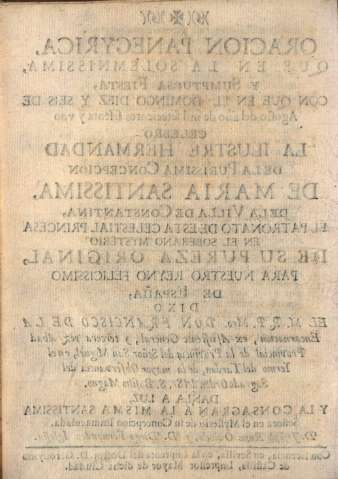 ORACION PANEGYRICA,
QUE EN LA SOLEMNISSIMA,
Y SUMPTUOSA FIESTA,
CON QUE EN EL DOMINGO DIEZ Y SEIS DE
Agosto del año de mil setecientos sesenta y uno
CELEBRÓ
LA ILUSTRE HERMANDAD
DE LA PURISSIMA CONCEPCION
DE MARIA SANTISSIMA,
DE LA VILLA DE CONSTANTINA,
EL PATRONATO DE ESTA CELESTIAL PRINCESA
EN EL SOBERANO MYSTERIO
DE SU PUREZA ORIGINAL,
PARA NUESTRO REYNO FELICISSIMO
DE ESPAÑA,
DIXO
EL M. R. P. Mro. DON FRANCISCO DE LA
Encarnacion, ex-Assistente General, y tercera vez Abad
Provincial de la Provincia del Señor San Miguel, en el
Yermo del Tardon, de la mayor Observancia del
Sagrado Orden de N. P. S. Basilio Magno.
DASE A LUZ,
Y LA CONSAGRAN A LA MISMA SANTISSIMA
Señora en el Mysterio de su Concepcion Immaculada,
Con licencia, en Sevilla, en la Imprenta del Doctor D. Geronymo
de Castilla, Impressor Mayor de dicha Ciudad.